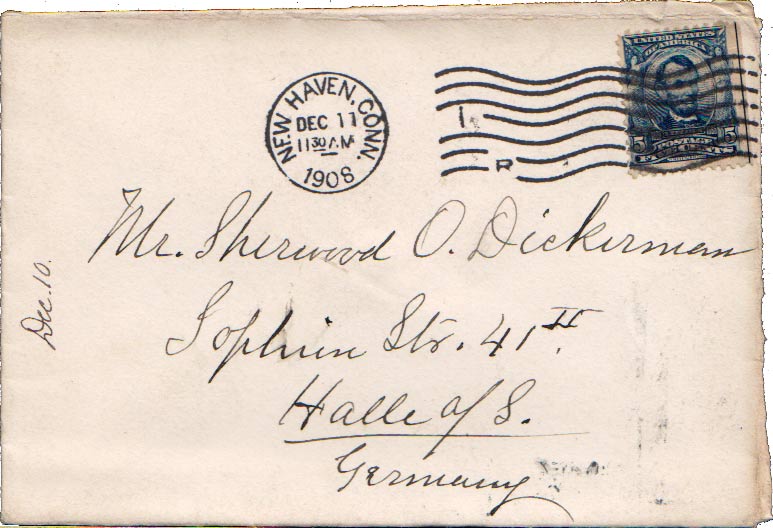 NEW HAVEN, CONN.
DEC 11
11 30 A.M.
1908
1
R
UNITED STATES
OF AMERICA
5 5
POSTAGE
Mr. Sherwood O. Dickerman
Sophien Str. 41 II.
Halle a/S.
Germany
Dec. 10.